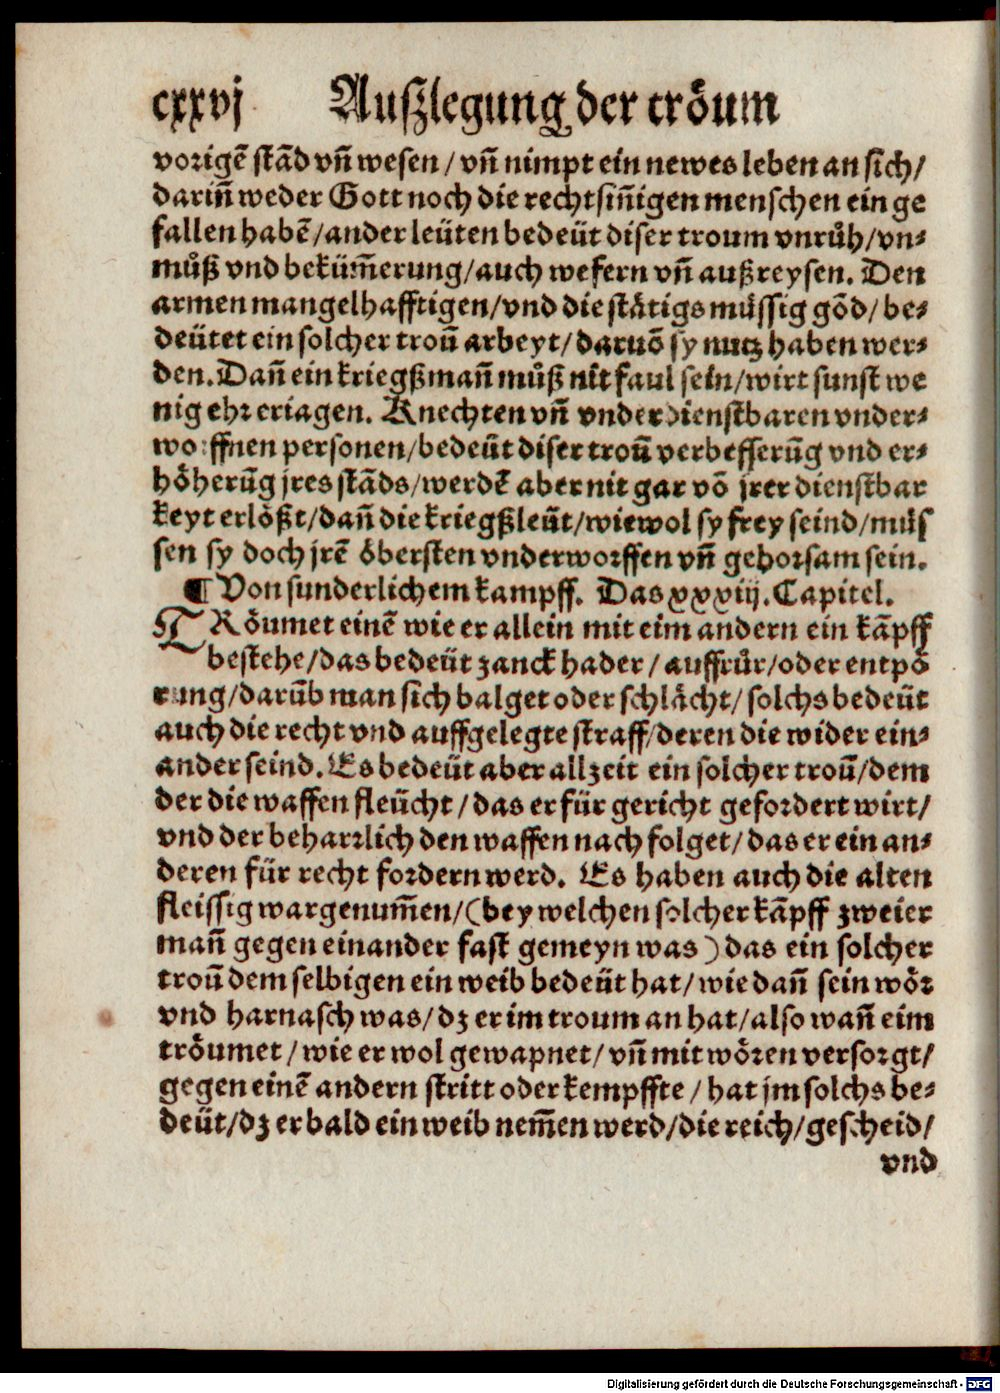 cxxvj Auszlegung der tröum
vorigē stād vn̄ wesen / vn̄ nimpt ein newes leben an sich/
darin̄ weder Gott noch die rechtsin̄igen menschen ein ge
fallen habē/ander leüten bedeüt diser troum vnrůh/vn⸗
můß vnd beküm̄erung/auch wefern vn̄ außreysen. Den
armen mangelhafftigen/vnd die stätigs müssig gōd/ be⸗
deütet ein solcher trou᷑ arbeyt/daruō sy nutz haben wer⸗
den. Dan̄ ein kriegßman̄ můß nit faul sein/wirt sunst we
nig ehr eriagen. Knechten vn̄ vnderdienstbaren vnder⸗
worffnen personen/bedeüt diser trou᷑ verbesserūg vnd er⸗
höherūg jres stāds/werdē aber nit gar vō jrer dienstbar
keyt erlößt/dan̄ die kriegßleüt/wiewol sy frey seind/müs
sen sy doch jrē öbersten vnderworffen vn̄ gehorsam sein.
¶ Von sunderlichem kampff. Das xxxiij. Capitel.
TRöumet einē wie er allein mit eim andern ein kāpff
bestehe/das bedeüt zanck hader / auffrůr/oder entpö
rung/darūb man sich balget oder schlächt/ solchs bedeüt
auch die recht vnd auffgelegte straff/deren die wider ein⸗
ander seind. Es bedeüt aber allzeit ein solcher trou᷑/dem
der die waffen fleücht / das er für gericht gefordert wirt/
vnd der beharrlich den waffen nach folget/das er ein an⸗
deren für recht fordern werd. Es haben auch die alten
fleissig wargenum̄en/(bey welchen solcher kāpff zweier
man̄ gegen einander fast gemeyn was) das ein solcher
trou᷑ dem selbigen ein weib bedeüt hat/wie dan̄ sein wör
vnd harnasch was/dz er im troum an hat/also wan̄ eim
tröumet / wie er wol gewapnet/ vn̄ mit wören versorgt/
gegen einē andern stritt oder kempffte / hat jm solchs be⸗
deüt/dz er bald ein weib nem̄en werd/die reich/gescheid/
vnd
Digitalisierung gefördert durch die Deutsche Forschungsgemeinschaft - DFG